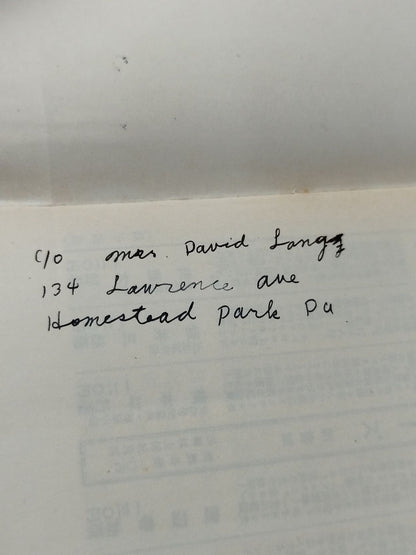 c/o mrs. David Long
134 Lawrence ave
Homestead Park Pa